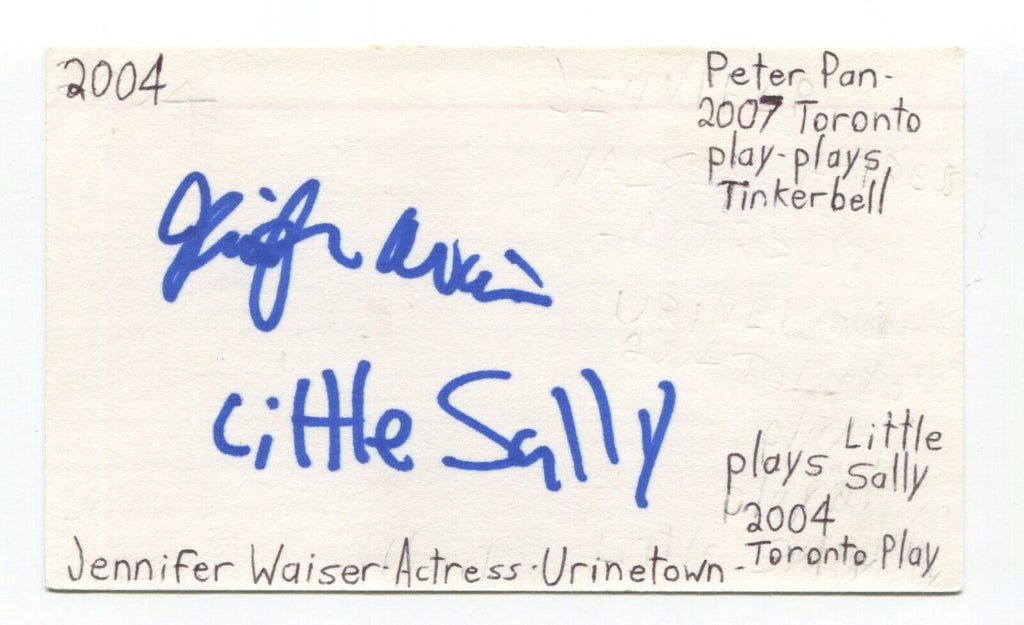 2004
Peter Pan-
2007 Toronto
play-plays
Tinkerbell
Little Sally
plays Little
Sally
2004
Jennifer Waiser-Actress-Urinetown-Toronto Play